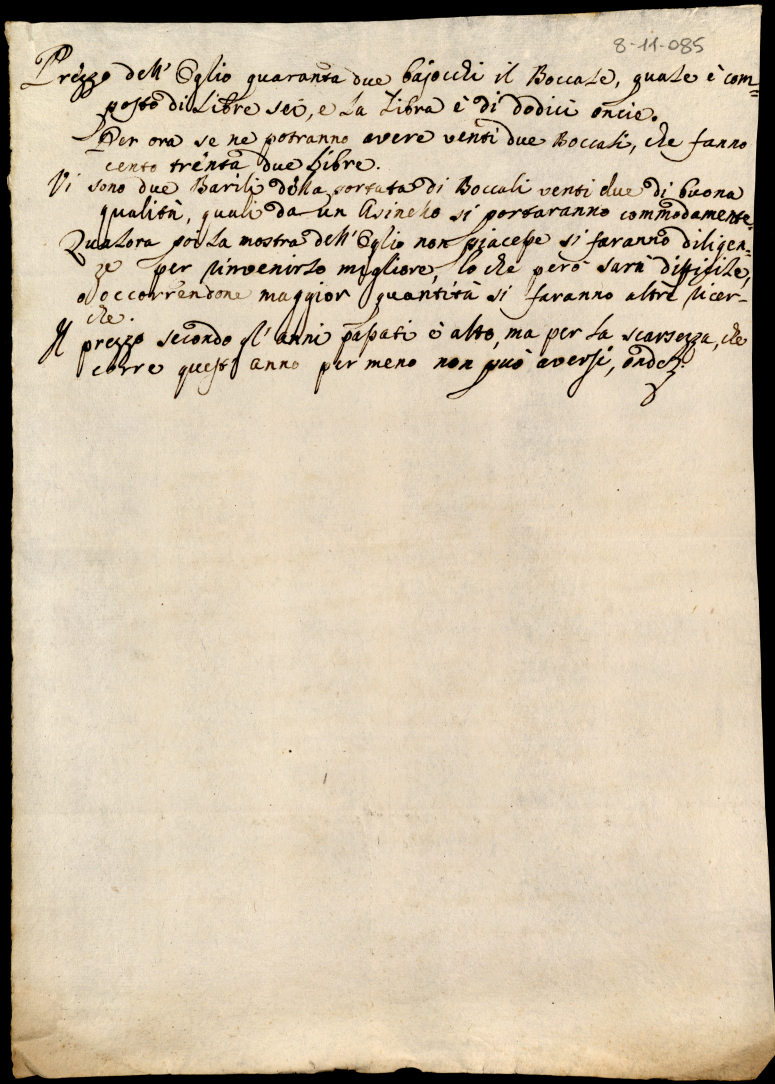 8-11-085
Prezzo dell' Oglio quaranta due bajocchi il Boccale, quale è com=
posto di Libre sei, e la Libra è di dodici oncie.
Per ora se ne potranno avere venti due Boccali, che fanno
cento trenta due Libre.
Vi sono due Barili della portata di Boccali venti due di buona
qualità, quali da un Asinello si portaranno commodamente.
Qualora poi la mostra dell' Oglio non piacesse si faranno diligen=
ze per rinvenirlo migliore, lo che però sarà difficile,
o occorrendone maggior quantità si faranno altre ricer-
che.
Il prezzo secondo gl' anni passati è alto, ma per la scarsezza, che
corre quest' anno per meno non può aversi, onde